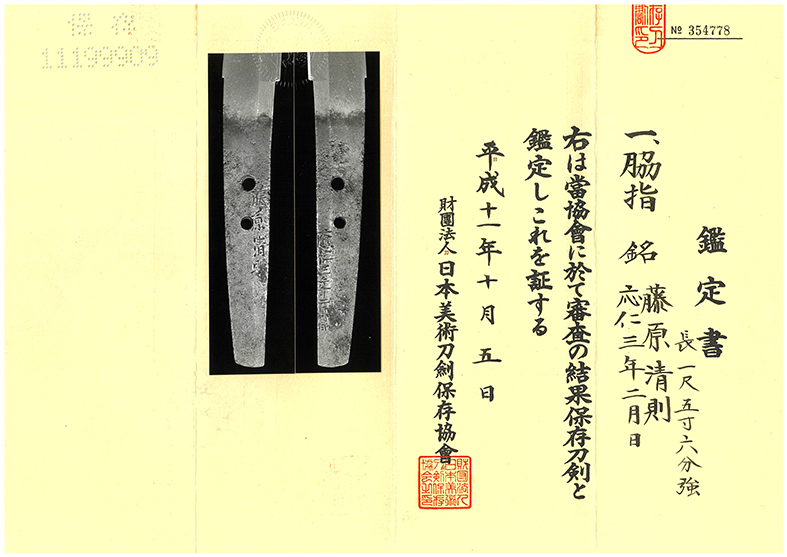 № 354778
鑑定書
一、脇指 銘 藤原清則
応仁三年二月日
長一尺五寸六分強
右は當協會に於て審査の結果保存刀剣と
鑑定しこれを証する
平成十一年十月五日
財團法人 日本美術刀劍保存協會
保存
11199909
藤原清則